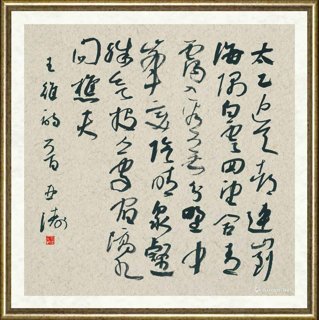 太乙近天都連山到
海隅白雲回望合青
靄入看無分野中
峰變陰晴眾壑
殊欲投人處宿隔水
問樵夫
王維詩